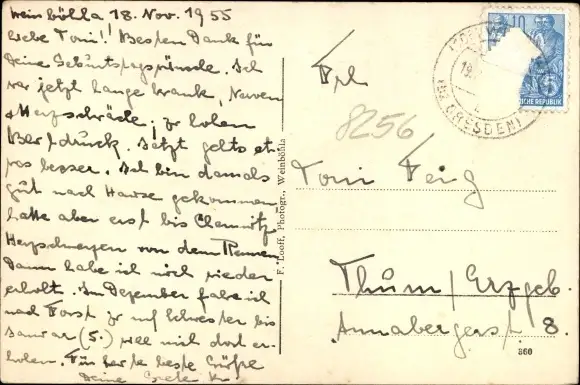 Weinböhla 18. Nov. 1955
Liebe Toni! Besten Dank für
Deine Geburtstagswünsche. Ich
war jetzt lange krank, Nerven
Herzschwäche, zu hohen
Blutdruck. Jetzt gehts et-
was besser. Ich bin damals
gut nach Hause gekommen
hatte aber erst bis Chemnitz
Herzschmerzen von dem Rennen
Dann habe ich mich wieder
erholt. Im Dezember fahre ich
nach Forst zu mf Schwester bis
Januar (5.) will mich dort er-
holen. Für heute beste Grüße
Deine Grete Kr.
F. Looff, Photogr., Weinböhla
10
5
DRESDEN
Frl.
8256
Toni Feig
Thum/Erzgeb.
Annabergerst 8.
860